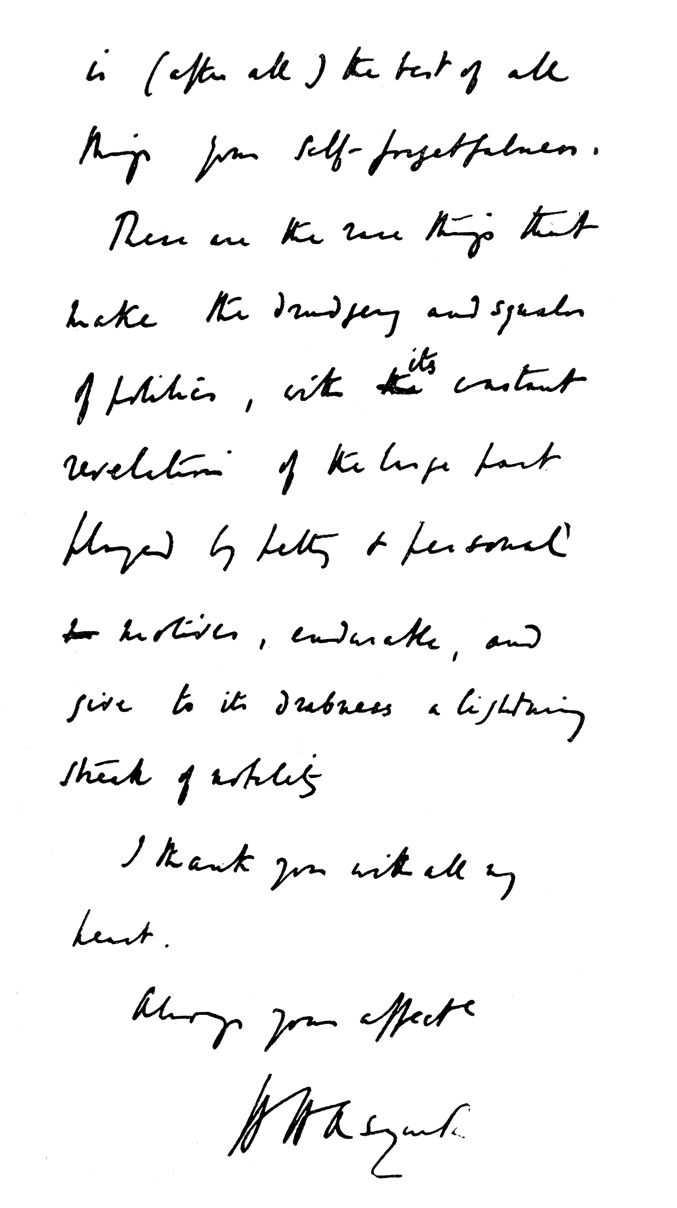 is (after all) the best of all
things your self-forgetfulness.
These are the rare things that
make the drudgery and squalor
of politics, with its constant
revelation of the large part
played by petty & personal
motives, endurable, and
give to its drabness a lightning
streak of nobility
I thank you with all my
heart.
Always yours affecte
H H Asquith